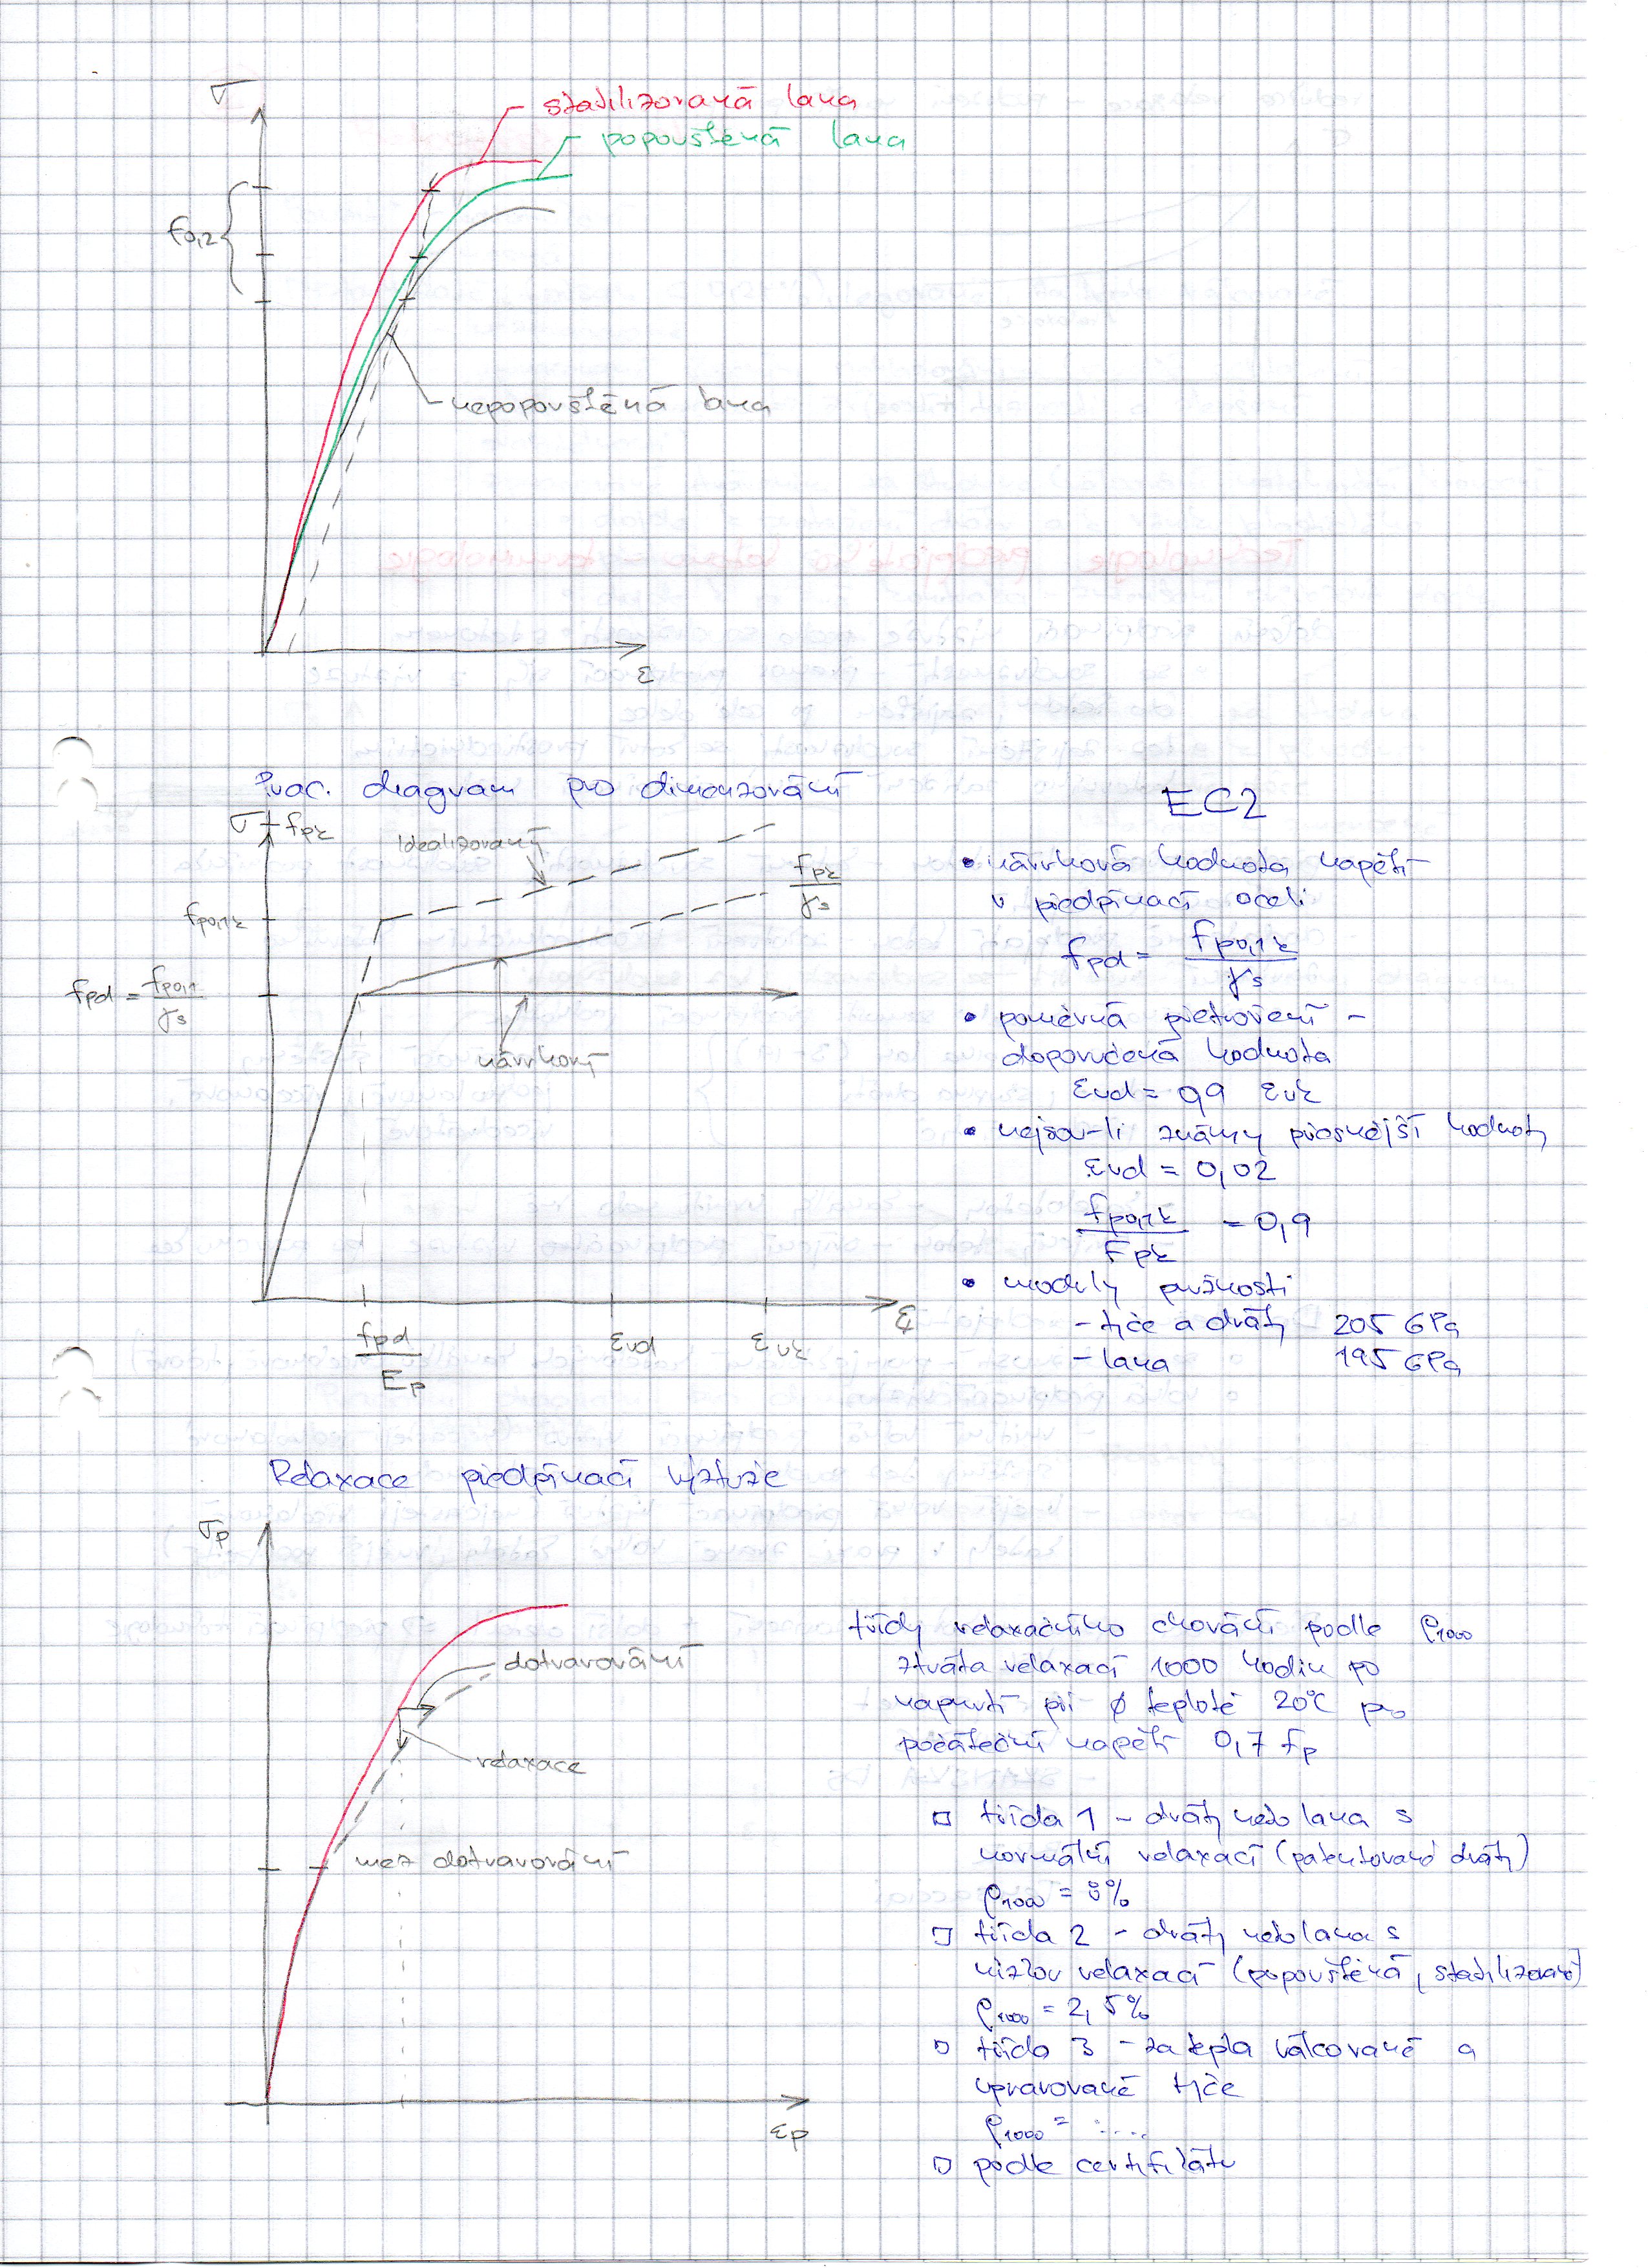 σ
stabilizovaná lana
popouštěná lana
f0,2
nepopouštěná lana
ε
Prac. diagram pro dimenzování
σ
fpk
Idealizovaný
fpk
γs
fp0,1k
fpd = fp0,1
γs
návrhový
fpd
Ep
εud
εuk
ε
EC2
• návrhová hodnota napětí
v předpínací oceli
fpd = fp0,1k
γs
• poměrná přetvoření -
doporučená hodnota
εud = 0,9 εuk
• nejsou-li známy přesnější hodnoty
εud = 0,02
fp0,1k = 0,9
Fpk
• moduly pružnosti
- tyče a dráty 205 GPa
- lana 195 GPa
Relaxace předpínací výztuže
σp
dotvarování
relaxace
mez dotvarování
εp
třídy relaxačního chování podle ρ1000
ztráta relaxací 1000 hodin po
napnutí při ø teplotě 20°C pro
počáteční napětí 0,7 fp
□ třída 1 - dráty nebo lana s
normální relaxací (patentované dráty)
ρ1000 = 8%
□ třída 2 - dráty nebo lana s
nízkou relaxací (popouštěná, stabilizovaná)
ρ1000 = 2,5%
□ třída 3 - za tepla válcované a
upravované tyče
ρ1000 = .....
□ podle certifikátu